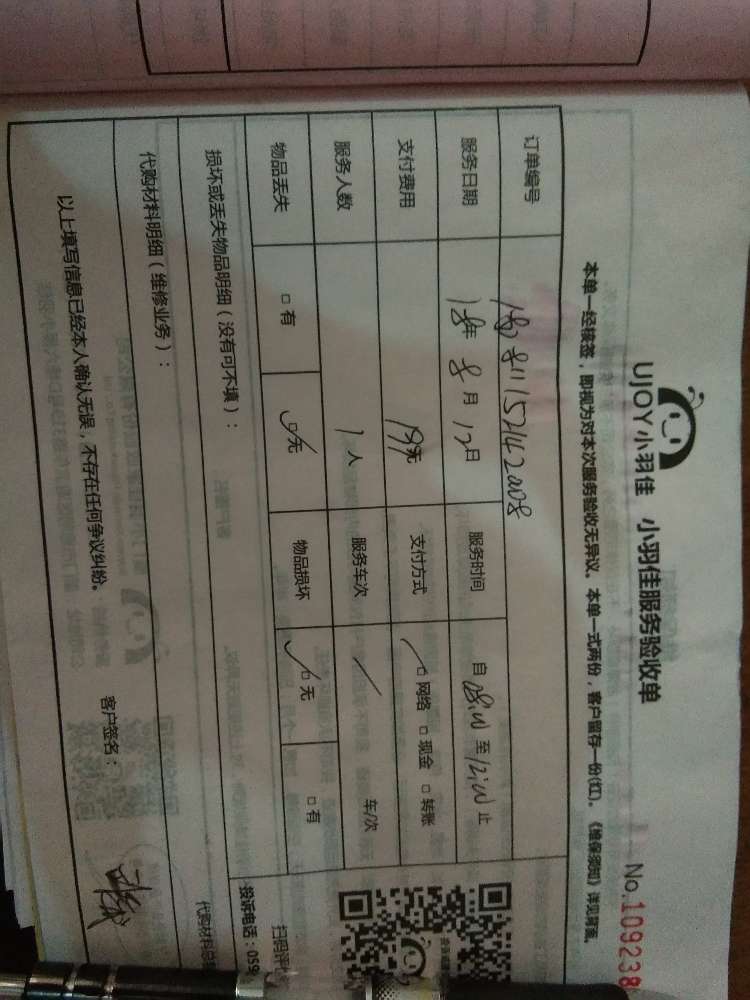 UJOY小羽佳 小羽佳服务验收单
No.109238
本单一经核签，即视为对本次服务验收无异议。本单一式两份，客户留存一份(红)。《维保须知》详见背面。
订单编号
服务日期 18年 8月 12日 服务时间 自 08:00 至 12:00 止
支付费用 199元 支付方式 □网络 □现金 □转账
服务人数 1人 服务车次 / 车/次
物品丢失 □有 □无 物品损坏 □无 □有
损坏或丢失物品明细（没有可不填）：
扫码评
投诉电话：059
代购材料明细（维修业务）：
代购材料总
以上填写信息已经本人确认无误，不存在任何争议纠纷。 客户签名：